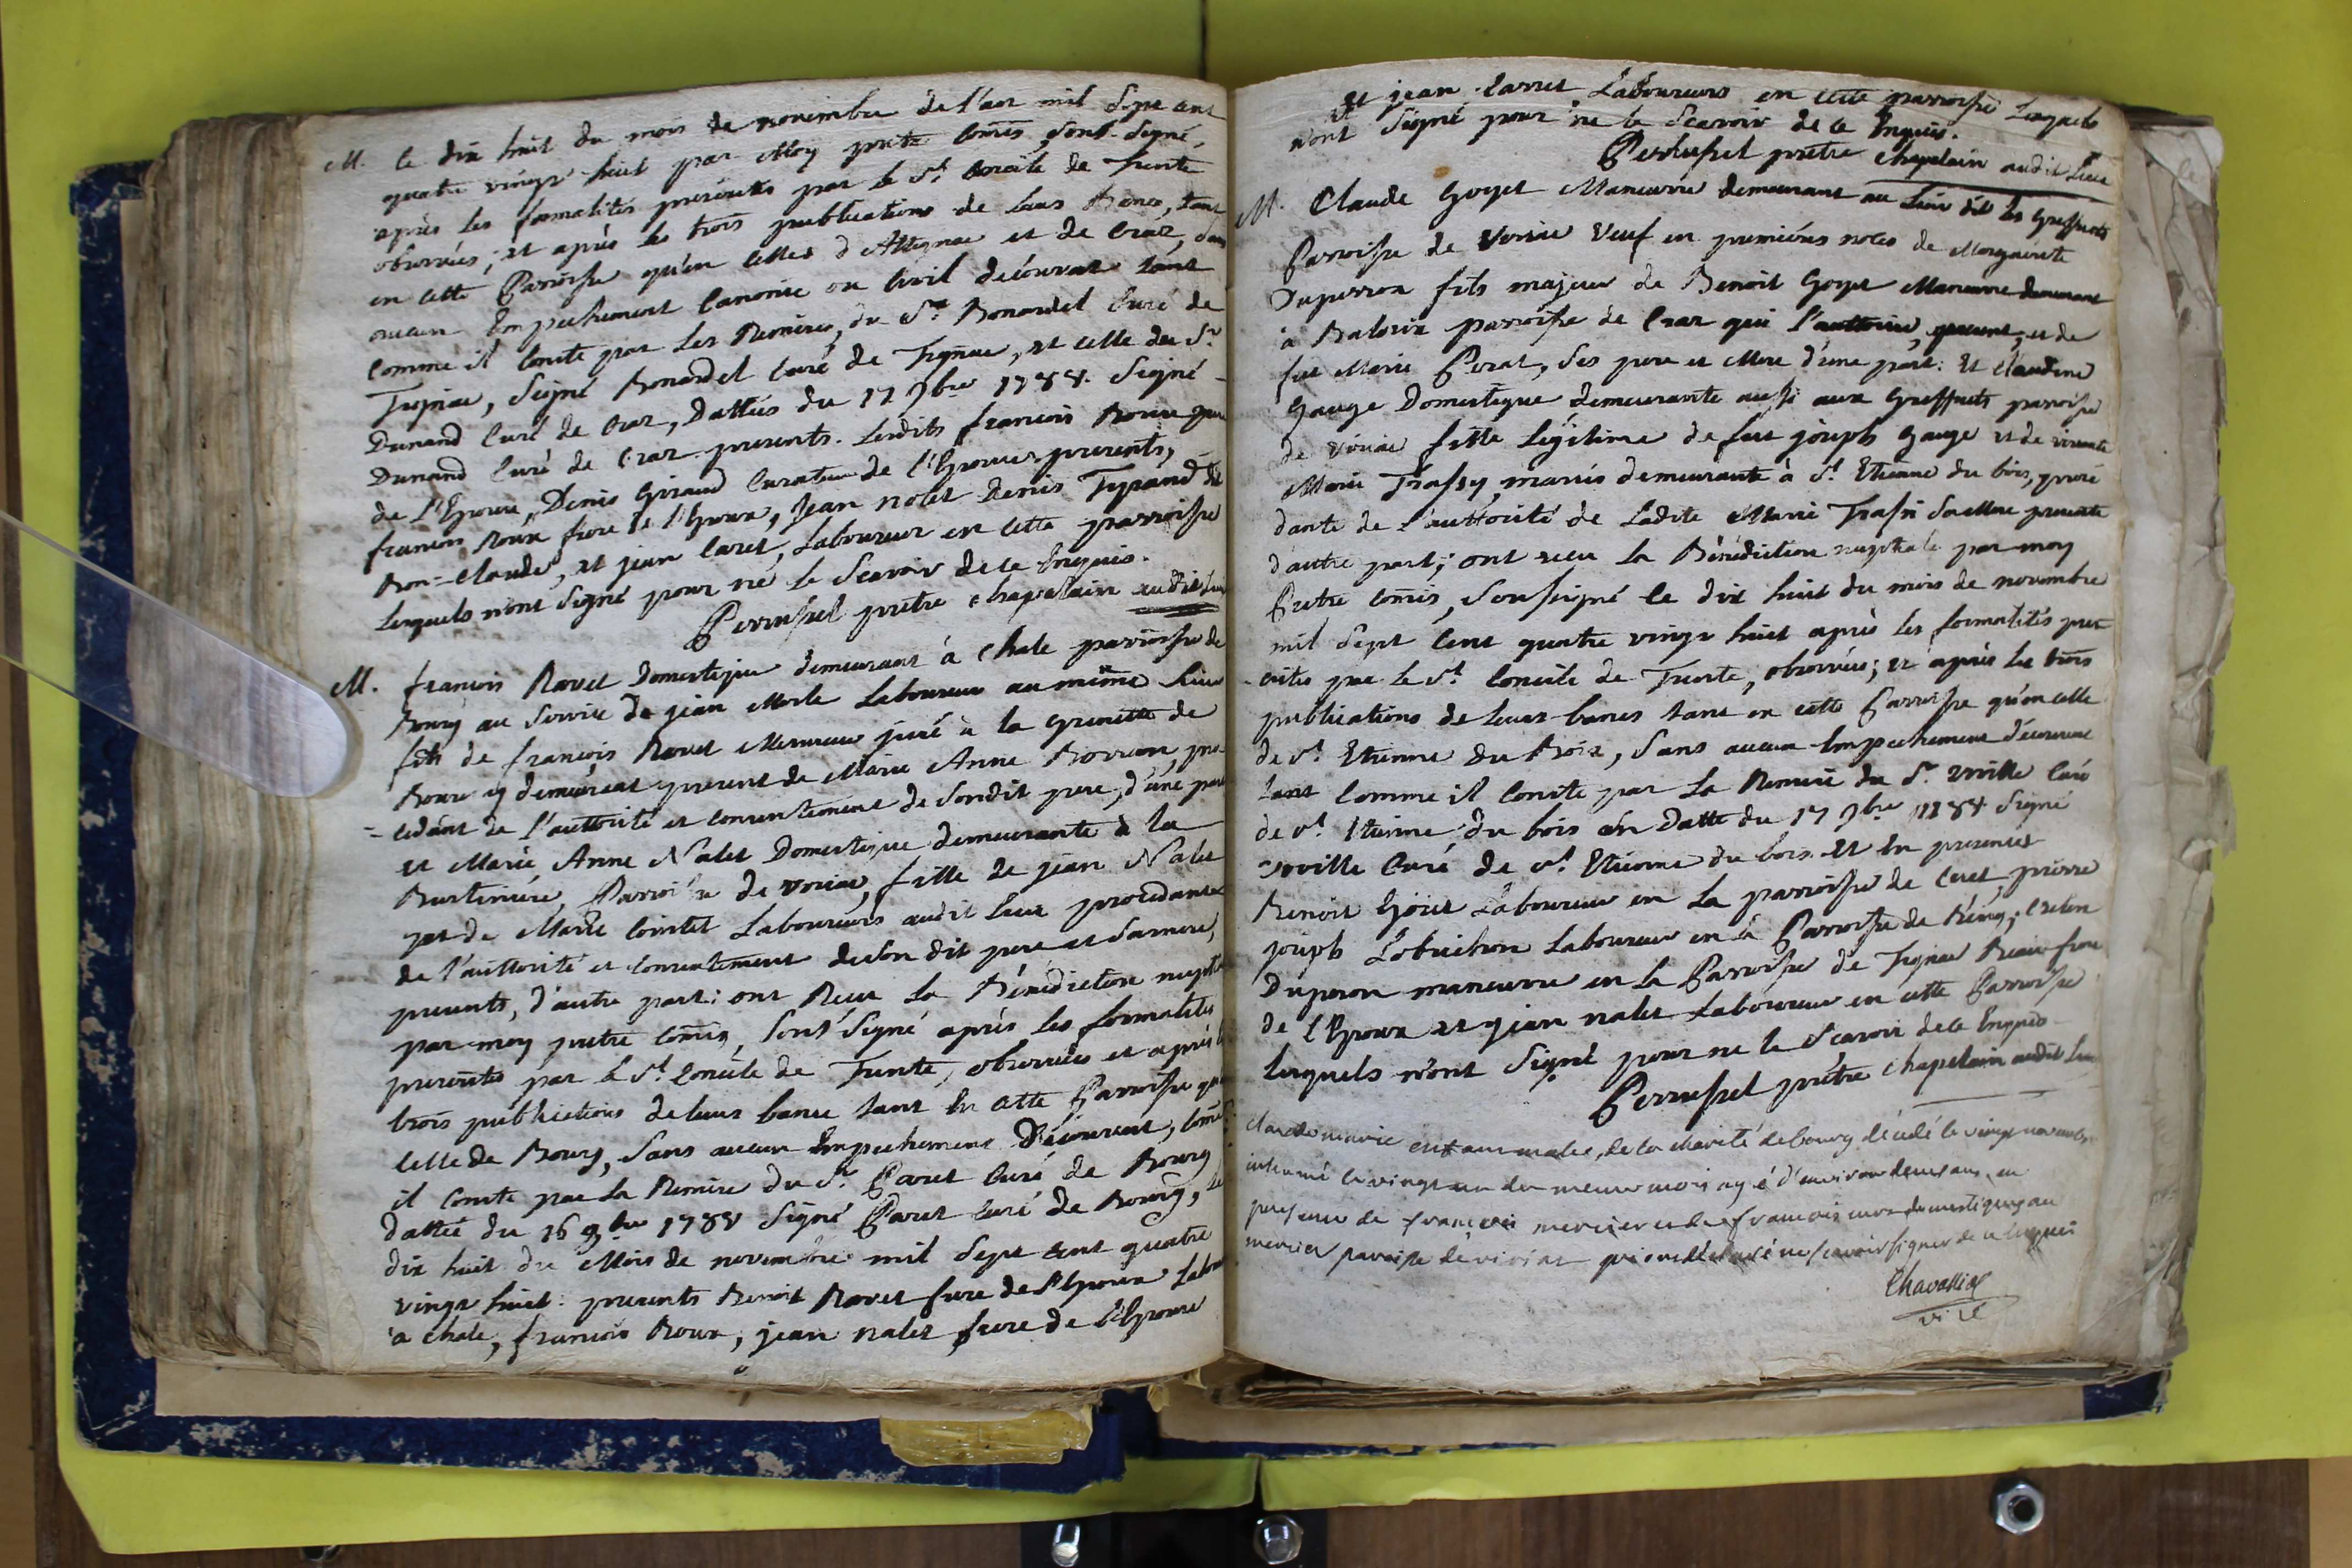 M. le dix huit du mois de novembre de l'an mil sept cent
quatre vingt huit par Moy pretre comis, sous-signé,
après les formalités prescrites par le St. Concile de Trente
observées; et après les trois publications de leurs Bancs, tant
en cette Parroisse qu'en celles d'Attignac et de Craz, sans
aucun Empechement Canonic ou Civil decouvert tant
comme il conste par les Remises, du Sr. Bonardel Curé de
Tignac, Signé Bonardel Curé de Tignac, et celle du Sr.
Dunand Curé de Craz, Dattées du 17 9bre 1788. Signé
Dunand Curé de Craz presents. Lesdits françois Roux pere
de l'Epouse, Denis Giraud Curateur de l'Epouse presents,
francois Roux frere de l'Epoux, Jean nolet Denis Tyrand dit
Bon-Claude, et jean Caret, Laboureur en cette parroisse
lesquels n'ont Signé pour ne le Scavoir de ce Enquis.
Perrusset pretre chapelain audit lieu
M. françois Ravet Domestique demeurant à Chale parroisse de
Bourg au Service de jean Morle Laboureur au même lieu
fils de françois Ravet Manœuvre juré à la grenette de
Bourg y demeurant present de Marie Anne Borron, pro-
= cedant de l'authorité et consentement de Sondit pere, d'une part
et Marie Anne Nalet Domestique demeurante à la
Burtiniere, Parroisse de viriac, fille de jean Nalet
et de Marie Cointet Laboureurs audit lieu procedante
de l'authorité et consentement de son dit pere et Sa mere,
presents, d'autre part: ont Receu la Bénédiction nuptiale
par moy pretre comis, Sous Signé après les formalités
prescrites par le St. Concile de Trente, observées et après les
trois publications de leurs bancs tant En cette Parroisse que
celle de Bourg, Sans aucun Empechement Découvert, come
il conste par la Remise du Sr. Paret Curé de Bourg
dattée du 16 9bre 1788 Signé Paret Curé de Bourg, le
dix huit du Mois de novembre mil Sept cent quatre
vingt huit: presents Benoit Ravet frere de l'Epoux Labour
à chale, françois Roux, jean nalet frere de l'Epouse
et jean Carret Laboureurs en cette parroisse Lesquels
n'ont Signé pour ne le Scavoir de ce Enquis.
Perrusset pretre Chapelain audit Lieu
M. Claude Goyet Manœuvre demeurant au Lieu dit les Greffuets
Parroisse de Viriac Veuf en premiéres noces de Marguerite
Duperron fils majeur de Benoit Goyet Manœuvre demeurant
à Balorix parroisse de Craz qui l'authorise, present, et de
fue Marie Perat, Ses pere et Mere d'une part: Et Claudine
Gauge Domestique demeurante aussi aux Greffuets parroisse
de viriac fille Légitime de feu joseph Gauge et de vivante
Marie Trassy, mariés demeurante à St. Etienne du bois, procé
dante de L'authorité de Ladite Marie Trassi Sa Mere presente
d'autre part; ont receu la Bénédiction nuptiale par moy
Pretre comis, Soussigné le dix huit du mois de novembre
mil Sept Cent quatre vingt huit après les formalités pres-
-crites par le St. Concile de Trente, observées; et après les trois
publications de leurs bancs tant en cette Parroisse qu'en celle
de St. Etienne Du Bois, Sans aucun Empechement découvert
tant Comme il Conste par La Remise du Sr. Curé
de St. Etienne du bois En Datte du 17 9bre 1788 Signé
Curé de St. Etienne du bois. Et En presences
Benoit Goiet Laboureur en la parroisse de pierre
joseph Lobrichon Laboureur en la Parroisse de
Duperon manœuvre en la Parroisse de Tignac Beau frere
de l'Epoux et jean nalet Laboureur en cette Parroisse
lesquels n'ont Signé pour ne le Scavoir de ce Enquis
Perrusset pretre chapelain audit lieu
Claude marie enfant malee, de la charité de bourg décédé le vingt novembre
inhumé le vingt un du meme mois agé d'environ deux ans en
presence de francois mercier et de francois domestiques au
mercier paroisse de viriat qui ont déclaré ne scavoir signer de ce enquis
Chavallier
vice